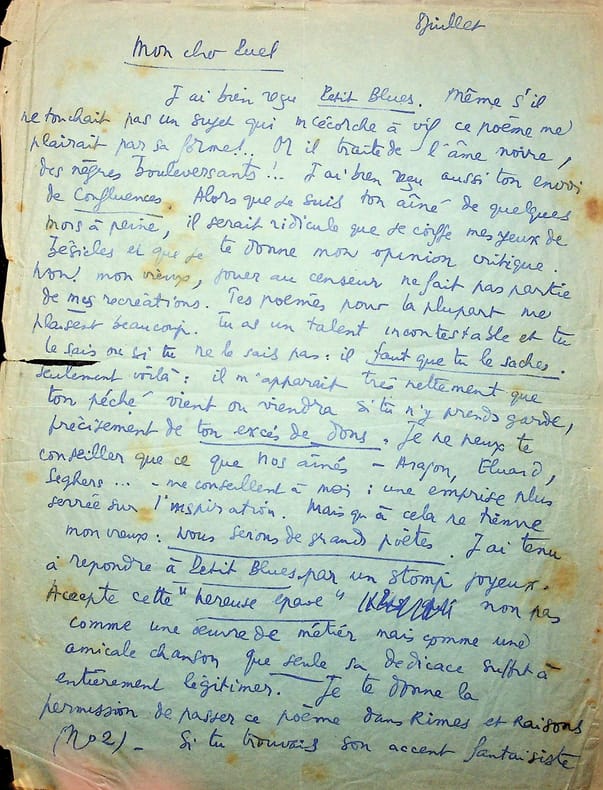 8 juillet
Mon cher Luel
J'ai bien reçu Petit Blues. Même s'il
ne touchait pas un sujet qui m'écorche à vif ce poème me
plairait par sa forme!.. Or il traite de l'âme noire,
des nègres bouleversants!.. J'ai bien reçu aussi ton envoi
de Confluences. Alors que je suis ton aîné de quelques
mois à peine, il serait ridicule que je coiffe mes yeux de
bésicles et que je te donne mon opinion critique.
Non! mon vieux, jouer au censeur ne fait pas partie
de mes recréations. Tes poèmes pour la plupart me
plaisent beaucoup. Tu as un talent incontestable et tu
le sais ou si tu ne le sais pas : il faut que tu le saches.
seulement voilà : il m'apparait très nettement que
ton péché vient ou viendra si tu n'y prends garde,
précisement de ton excés de dons. Je ne peux te
conseiller que ce que nos aînés - Aragon, Eluard,
Seghers ... - me conseillent à moi : une emprise plus
serrée sur l'inspiration. Mais qu'à cela ne tienne
mon vieux : nous serons de grands poètes. J'ai tenu
à repondre à Petit Blues par un stomp joyeux.
Accepte cette "hereuse épave" non pas
comme une oeuvre de métier mais comme une
amicale chanson que seule sa dedicace suffit à
entièrement légitimer. Je te donne la
permission de passer ce poème dans Rimes et Raisons
(No 2) - Si tu trouvais son accent fantaisiste